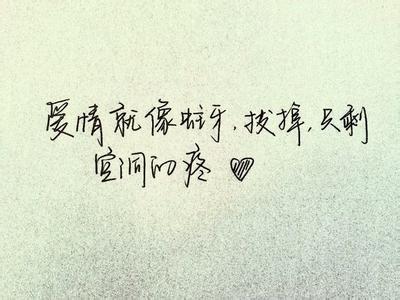 爱情就像蛀牙,拔掉,只剩
空洞的疼